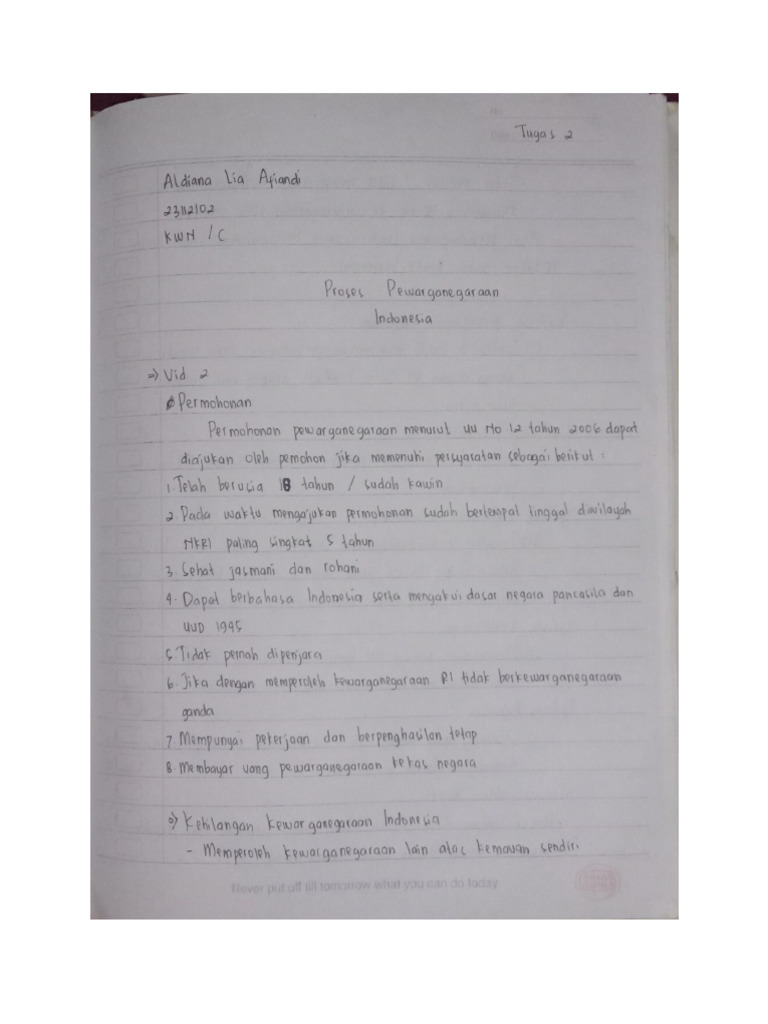 Tugas 2
Aldiana Lia Afiandi
23112102
KWN / C
Proses Pewarganegaraan
Indonesia
=> Vid 2
Permohonan
Permohonan pewarganegaraan menurut UU No 12 tahun 2006 dapat
diajukan oleh pemohon jika memenuhi persyaratan sebagai berikut :
1. Telah berusia 18 tahun / sudah kawin
2. Pada waktu mengajukan permohonan sudah bertempat tinggal diwilayah
NKRI paling singkat 5 tahun
3. Sehat jasmani dan rohani
4. Dapat berbahasa Indonesia serta mengakui dasar negara pancasila dan
UUD 1945
5. Tidak pernah dipenjara
6. Jika dengan memperoleh kewarganegaraan RI tidak berkewarganegaraan
ganda
7. Mempunyai pekerjaan dan berpenghasilan tetap
8. Membayar uang pewarganegaraan kekas negara
=> Kehilangan kewarganegaraan Indonesia
- Memperoleh kewarganegaraan lain atas kemauan sendiri
Never put off till tomorrow what you can do today